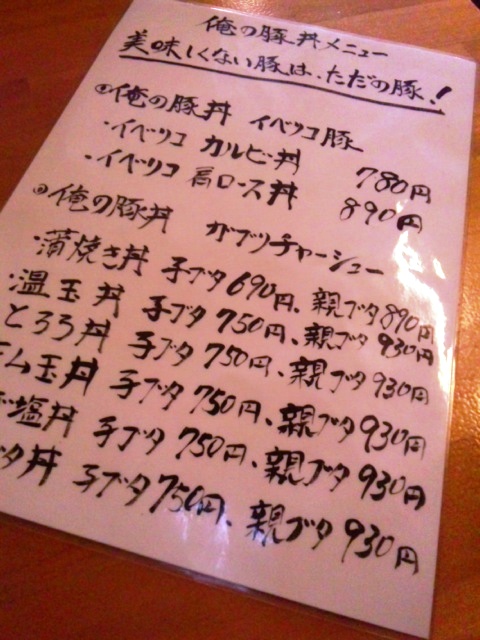 俺の豚丼メニュー
美味しくない豚は、ただの豚!
俺の豚丼 イベリコ豚
・イベリコ カルビー丼 780円
・イベリコ 肩ロース丼 890円
俺の豚丼 ガブツチャーシュー
・蒲焼き丼 子ブタ690円、親ブタ890円
・温玉丼 子ブタ750円、親ブタ930円
とろろ丼 子ブタ750円、親ブタ930円
ム玉丼 子ブタ750円、親ブタ930円
塩丼 子ブタ750円、親ブタ930円
タ丼 子ブタ750円、親ブタ930円